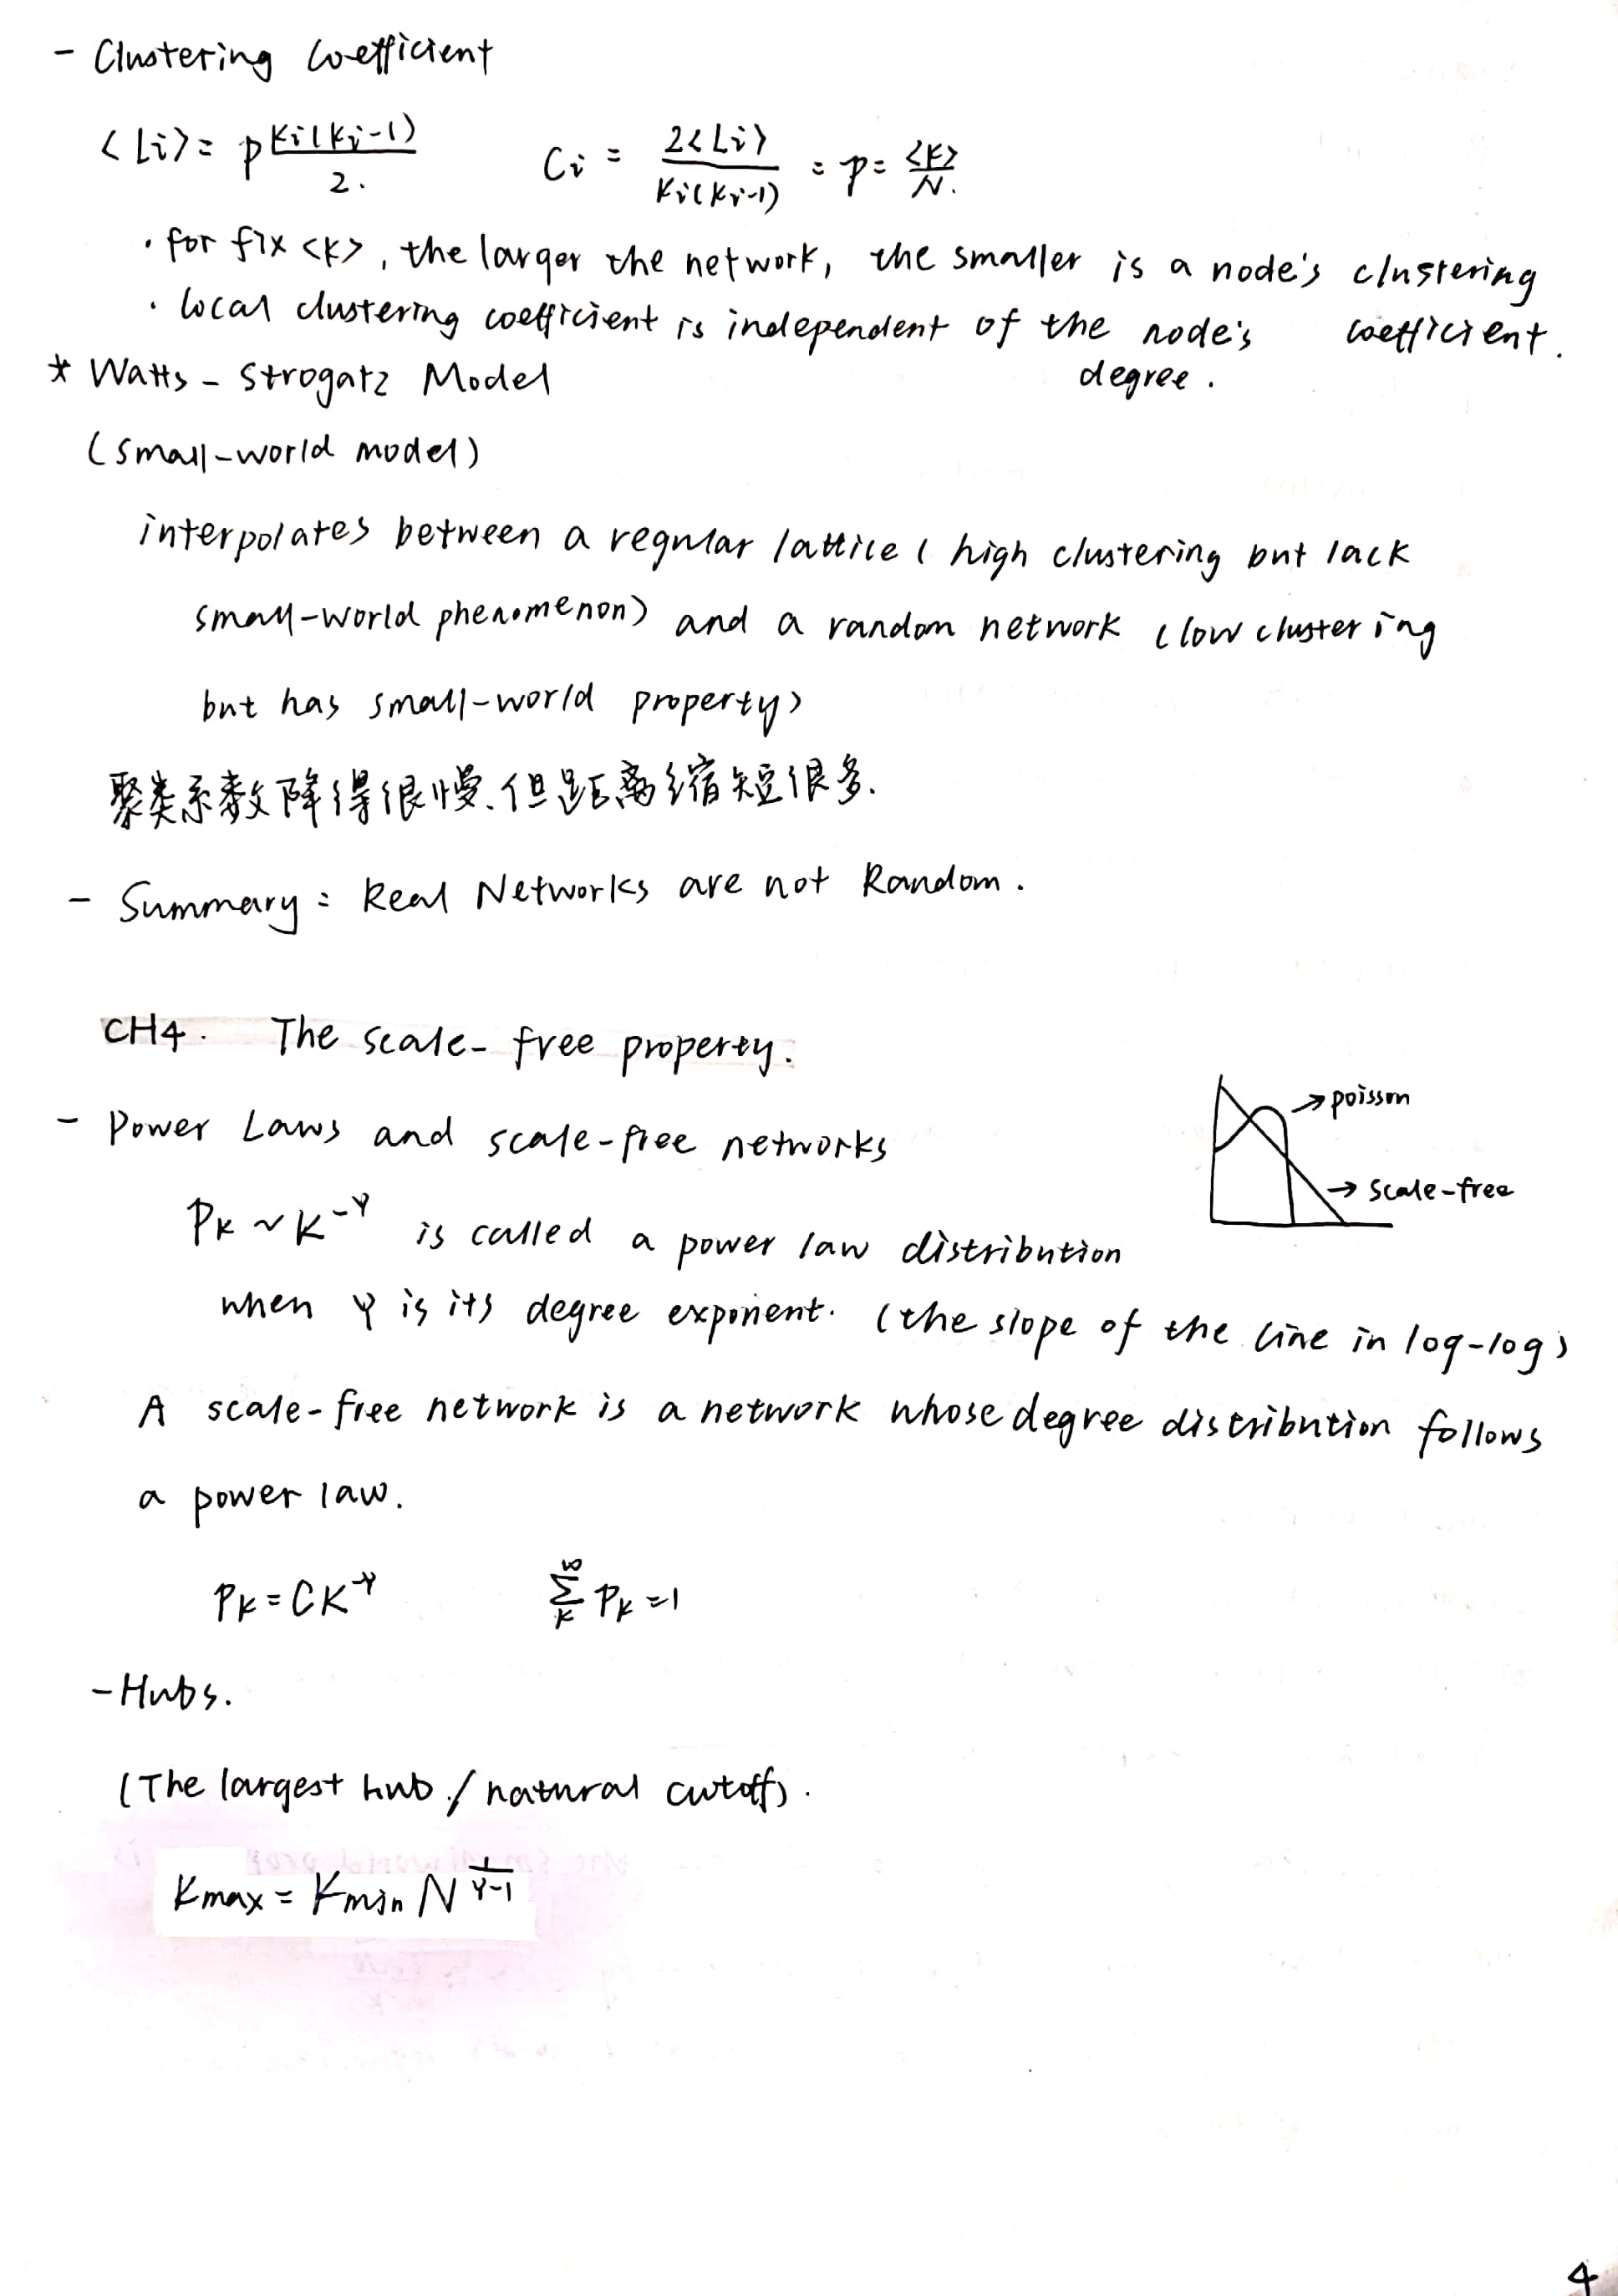 - Clustering Coefficient
<Li> = p Ki(Ki-1)/2. Ci = 2<Li>/Ki(Ki-1) = p = <K>/N.
· for fix <K>, the larger the network, the smaller is a node's clustering
coefficient.
· local clustering coefficient is independent of the node's
degree.
* Watts - Strogatz Model
(small-world model)
interpolates between a regular lattice ( high clustering but lack
small-world phenomenon) and a random network (low clustering
but has small-world property)
聚类系数降得很慢、但距离缩短很多.
- Summary: Real Networks are not Random.
CH4. The scale-free property.
→ poisson
- Power Laws and scale-free networks
→ scale-free
PK ~ K^-γ is called a power law distribution
when γ is its degree exponent. (the slope of the line in log-log)
A scale-free network is a network whose degree distribution follows
a power law.
PK = CK^-γ ∑_K^∞ PK = 1
- Hubs.
(The largest hub / natural cutoff).
Kmax = Kmin N^1/(γ-1)
4